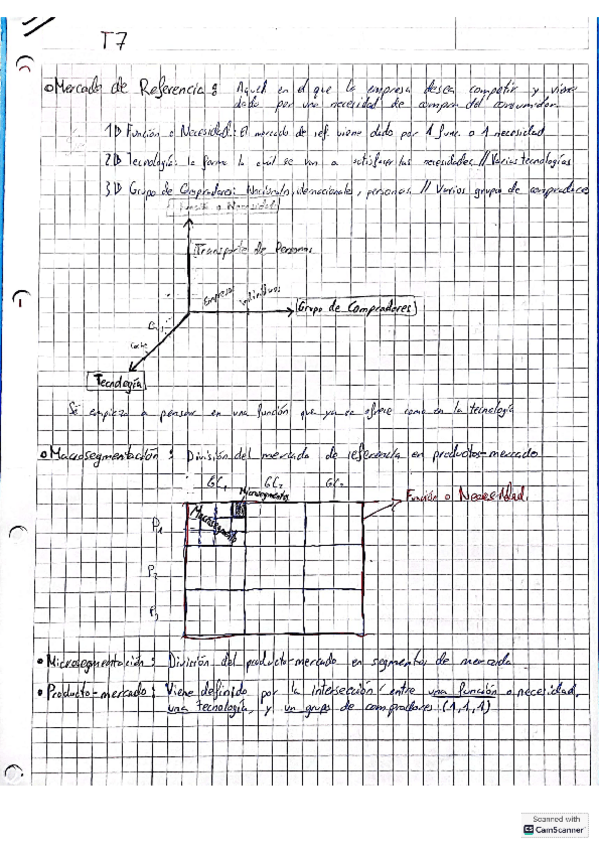 T7
Mercado de Referencia: Aquel en el que la empresa desea competir y viene
dado por una necesidad de compra del consumidor.
1) Función o Necesidad: El mercado de ref. viene dado por 1 func. o 1 necesidad
2) Tecnología: la forma la cuál se van a satisfacer las necesidades // Varias tecnologías
3) Grupo de Compradores: Nacionales, internacionales, personas // Varios grupos de compradores
Función o Necesidad
Transporte de Personas
Empresas
individuos
Grupo de Compradores
Coche
Tecnología
Sé empieza a pensar en una función que ya se ofrece como en la tecnología
Macrosegmentación: División del mercado de referencia en productos-mercado
GC1 GC2 GC3
Microsegmentos
Función o Necesidad.
Macrosegmento
P1
P2
P3
Microsegmentación: División del producto-mercado en segmentos de mercado
Producto-mercado: Viene definido por la intersección entre una función o necesidad,
una tecnología, y un grupo de compradores (1,1,1)
Scanned with
CS CamScanner